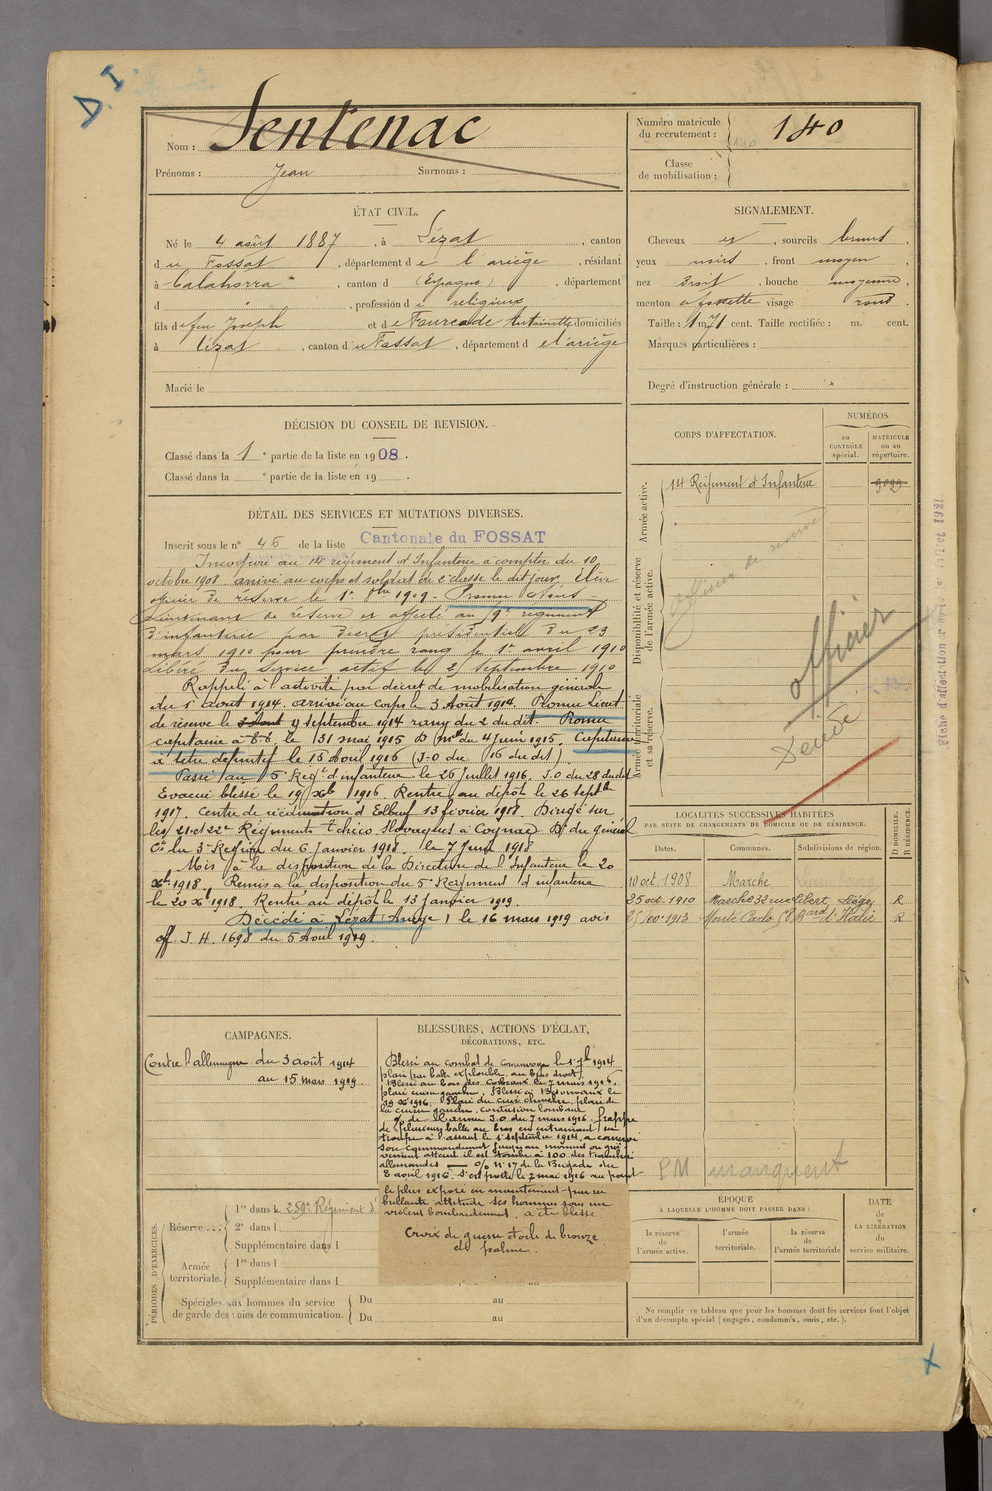 D. I
Nom : Sentenac
Prénoms : Jean Surnoms :
Numéro matricule du recrutement : 140
Classe de mobilisation :
ÉTAT CIVIL.
Né le 4 août 1887, à Lézat, canton
du Fossat, département de l'ariège, résidant
à Calahorra, canton d (Espagne), département
d " , profession de religieux
fils de feu Joseph et de Fourcade Antoinette domiciliés
à Lézat, canton du Fossat, département de l'ariège
Marié le
SIGNALEMENT.
Cheveux et, sourcils bruns,
yeux noirs, front moyen
nez droit, bouche moyenne,
menton à fossette visage rond
Taille : 1 m 71 cent. Taille rectifiée : m. cent.
Marques particulières :
Degré d'instruction générale :
DÉCISION DU CONSEIL DE REVISION.
Classé dans la 1e partie de la liste en 1908.
Classé dans la e partie de la liste en 19 .
CORPS D'AFFECTATION.
NUMÉROS
au CONTRÔLE spécial.
MATRICULE ou au répertoire.
Armée active.
14 Régiment d'Infanterie
Disponibilité et réserve de l'armée active.
officier de réserve
Armée territoriale et sa réserve.
officier
Décédé
DÉTAIL DES SERVICES ET MUTATIONS DIVERSES.
Inscrit sous le n° 46 de la liste Cantonale du FOSSAT
Incorporé au 14 régiment d'Infanterie à compter du 10
octobre 1908. arrivé au corps et soldat de 2e classe le dit jour. Élève
officier de réserve le 1er 8bre 1909. Promu Sous
Lieutenant de réserve et affecté au 9e régiment
d'infanterie par décret présidentiel du 23
mars 1910 pour prendre rang le 1er avril 1910
Libéré du service actif le 2 septembre 1910
Rappelé à l'activité par décret de mobilisation générale
du 1er août 1914. arrivé au corps le 3 Août 1914. Promu Lieut
de réserve le 4 septembre 1914 rang du 2 du dit. Promu
capitaine à t.t. le 31 mai 1915 D mlle du 4 Juin 1915. Capitaine
à titre définitif le 15 Avril 1916 (J.O du 16 du dit)
Passé au 5 Regt d'infanterie le 26 Juillet 1916. J.O du 28 du dit
Evacué blessé le 19 Xbre 1916. Rentré au dépôt le 26 septbre
1917. Centre de rééducation d'Elbeuf 13 février 1918. Dirigé sur
les 21 et 22e Régiments Tchéco Slovaques à Cognac Dn du général
Ct la 3e Région du 6 Janvier 1918. le 7 Juin 1918
Mis à la disposition de la Direction de l'Infanterie le 20
Xbre 1918. Remis à la disposition du 5e Régiment d'infanterie
le 20 Xbre 1918. Rentré au dépôt le 13 janvier 1919.
Décédé à Lézat Ariège) le 16 mars 1919 avis
off. J. H. 1698 du 5 Avril 1919.
LOCALITÉS SUCCESSIVES HABITÉES
PAR SUITE DE CHANGEMENTS DE DOMICILE OU DE RÉSIDENCE.
Dates. Communes. Subdivisions de région. D DOMICILE. R RÉSIDENCE.
10 oct. 1908 Marche
25 oct. 1910 Marche 32 rue Liège R
1913 Monte Carlo Bard d'Italie R
PM manquent
CAMPAGNES.
Contre l'allemagne du 3 août 1914
au 15 mars 1919.
BLESSURES, ACTIONS D'ÉCLAT,
DÉCORATIONS, ETC.
Blessé au combat de le 1er 7bre 1914
plaie par balle explosible au bras droit.
Blessé au bois des Corbeaux le 7 mars 1916.
plaie cuisse gauche. Blessé à Bezonvaux le
19 Xbre 1916. Plaie du cuir chevelu, plaie de
la cuisse gauche, contusion lombaire
de l'armée J.O du 7 mars 1916. frappé
de plusieurs balles au bras en entrainant sa
troupe à l'assaut le 1er septembre 1914, a conservé
son commandement jusqu'au moment où griè
vement atteint il est tombé à 100 des tranchées
allemandes — O/ n° 17 de la Brigade du
8 avril 1916. S'est porté le 7 mai 1916 au point
le plus exposé en maintenant par sa
brillante attitude ses hommes sous un
violent bombardement, a été blessé
Croix de guerre étoile de bronze
et palme.
PÉRIODES D'EXERCICES.
Réserve... 1re dans le 259e Régiment d'
2e dans l
Supplémentaire dans l
Armée territoriale. 1re dans l
Supplémentaire dans l
Spéciales aux hommes du service de garde des voies de communication. Du au
Du au
ÉPOQUE
À LAQUELLE L'HOMME DOIT PASSER DANS :
la réserve de l'armée active.
l'armée territoriale.
la réserve de l'armée territoriale
DATE de LA LIBÉRATION du service militaire.
Ne remplir ce tableau que pour les hommes dont les services font l'objet
d'un décompte spécial (engagés, condamnés, omis, etc.).